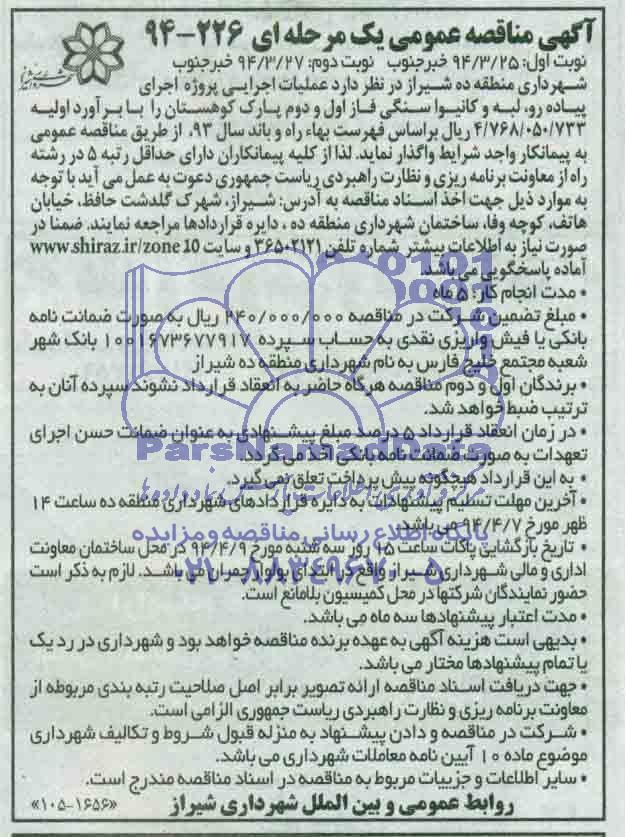 آگهی مناقصه عمومی یک مرحله ای ۲۲۶-۹۴
نوبت اول: ۹۴/۳/۲۵ خبرجنوب   نوبت دوم: ۹۴/۳/۲۷ خبرجنوب
شهرداری منطقه ده شیراز در نظر دارد عملیات اجرایی پروژه اجرای
پیاده رو، لبه و کانیوا سنگی فاز اول و دوم پارک کوهستان را با برآورد اولیه
۴/۷۶۸/۰۵۰/۷۳۳ ریال براساس فهرست بهاء راه و باند سال ۹۳، از طریق مناقصه عمومی
به پیمانکار واجد شرایط واگذار نماید. لذا از کلیه پیمانکاران دارای حداقل رتبه ۵ در رشته
راه از معاونت برنامه ریزی و نظارت راهبردی ریاست جمهوری دعوت به عمل می آید با توجه
به موارد ذیل جهت اخذ اسناد مناقصه به آدرس: شیراز، شهرک گلدشت حافظ، خیابان
هاتف، کوچه وفا، ساختمان شهرداری منطقه ده، دایره قراردادها مراجعه نمایند. ضمنا در
صورت نیاز به اطلاعات بیشتر شماره تلفن ۳۶۵۰۲۱۲۱ و سایت www.shiraz.ir/zone 10
آماده پاسخگویی می باشد.
• مدت انجام کار: ۵ ماه
• مبلغ تضمین شرکت در مناقصه ۲۴۰/۰۰۰/۰۰۰ ریال به صورت ضمانت نامه
بانکی یا فیش واریزی نقدی به حساب سپرده ۱۰۰۱۶۷۳۶۷۷۹۱۷ بانک شهر
شعبه مجتمع خلیج فارس به نام شهرداری منطقه ده شیراز
• برندگان اول و دوم مناقصه هرگاه حاضر به انعقاد قرارداد نشوند سپرده آنان به
ترتیب ضبط خواهد شد.
• در زمان انعقاد قرارداد ۵ درصد مبلغ پیشنهادی به عنوان ضمانت حسن اجرای
تعهدات به صورت ضمانت نامه بانکی اخذ می گردد.
• به این قرارداد هیچگونه پیش پرداخت تعلق نمی گیرد.
• آخرین مهلت تسلیم پیشنهادات به دایره قراردادهای شهرداری منطقه ده ساعت ۱۴
ظهر مورخ ۹۴/۴/۷ می باشد.
• تاریخ بازگشایی پاکات ساعت ۱۵ روز سه شنبه مورخ ۹۴/۴/۹ در محل ساختمان معاونت
اداری و مالی شهرداری شیراز واقع در ابتدای بولوار چمران می باشد. لازم به ذکر است
حضور نمایندگان شرکتها در محل کمیسیون بلامانع است.
• مدت اعتبار پیشنهادها سه ماه می باشد.
• بدیهی است هزینه آگهی به عهده برنده مناقصه خواهد بود و شهرداری در رد یک
یا تمام پیشنهادها مختار می باشد.
• جهت دریافت اسناد مناقصه ارائه تصویر برابر اصل صلاحیت رتبه بندی مربوطه از
معاونت برنامه ریزی و نظارت راهبردی ریاست جمهوری الزامی است.
• شرکت در مناقصه و دادن پیشنهاد به منزله قبول شروط و تکالیف شهرداری
موضوع ماده ۱۰ آیین نامه معاملات شهرداری می باشد.
• سایر اطلاعات و جزییات مربوط به مناقصه در اسناد مناقصه مندرج است.
روابط عمومی و بین الملل شهرداری شیراز   «۱۰۵-۱۶۵۶»
پایگاه اطلاع رسانی مناقصه و مزایده
۰۲۱-۸۸۳۴۹۶۷۰-۵